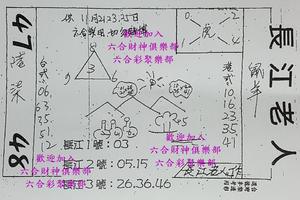 長江老人
鼠年
供11月21.23.25日
六合財神俱樂部
六合彩聚樂部
歡迎加入
虎
0
2
1
4
3
6
9
47
陸
柒
48
台式
06.
63.
35.
51.
12
港式
10.
16
23
35
41
歡迎加入
六合財神俱樂部
六合彩聚樂部
歡迎加入
六合財神俱樂部
六合彩聚樂部
長江1號：03
長江2號：05.15
長江3號：26.36.46
長江老人作